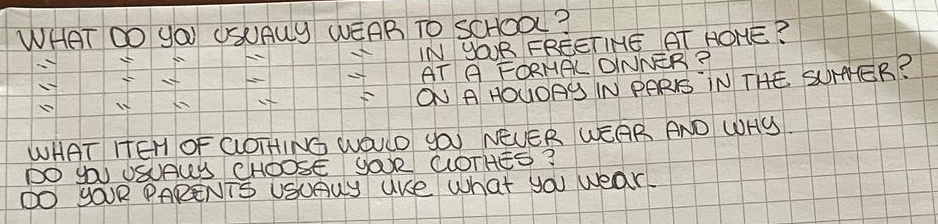 WHAT DO YOU USUALLY WEAR TO SCHOOL?
" " " " " IN YOUR FREETIME AT HOME?
" " " " " AT A FORMAL DINNER?
" " " " " ON A HOLIDAY IN PARIS IN THE SUMMER?
WHAT ITEM OF CLOTHING WOULD YOU NEVER WEAR AND WHY.
DO YOU USUALLY CHOOSE YOUR CLOTHES?
DO YOUR PARENTS USUALLY LIKE what you wear.